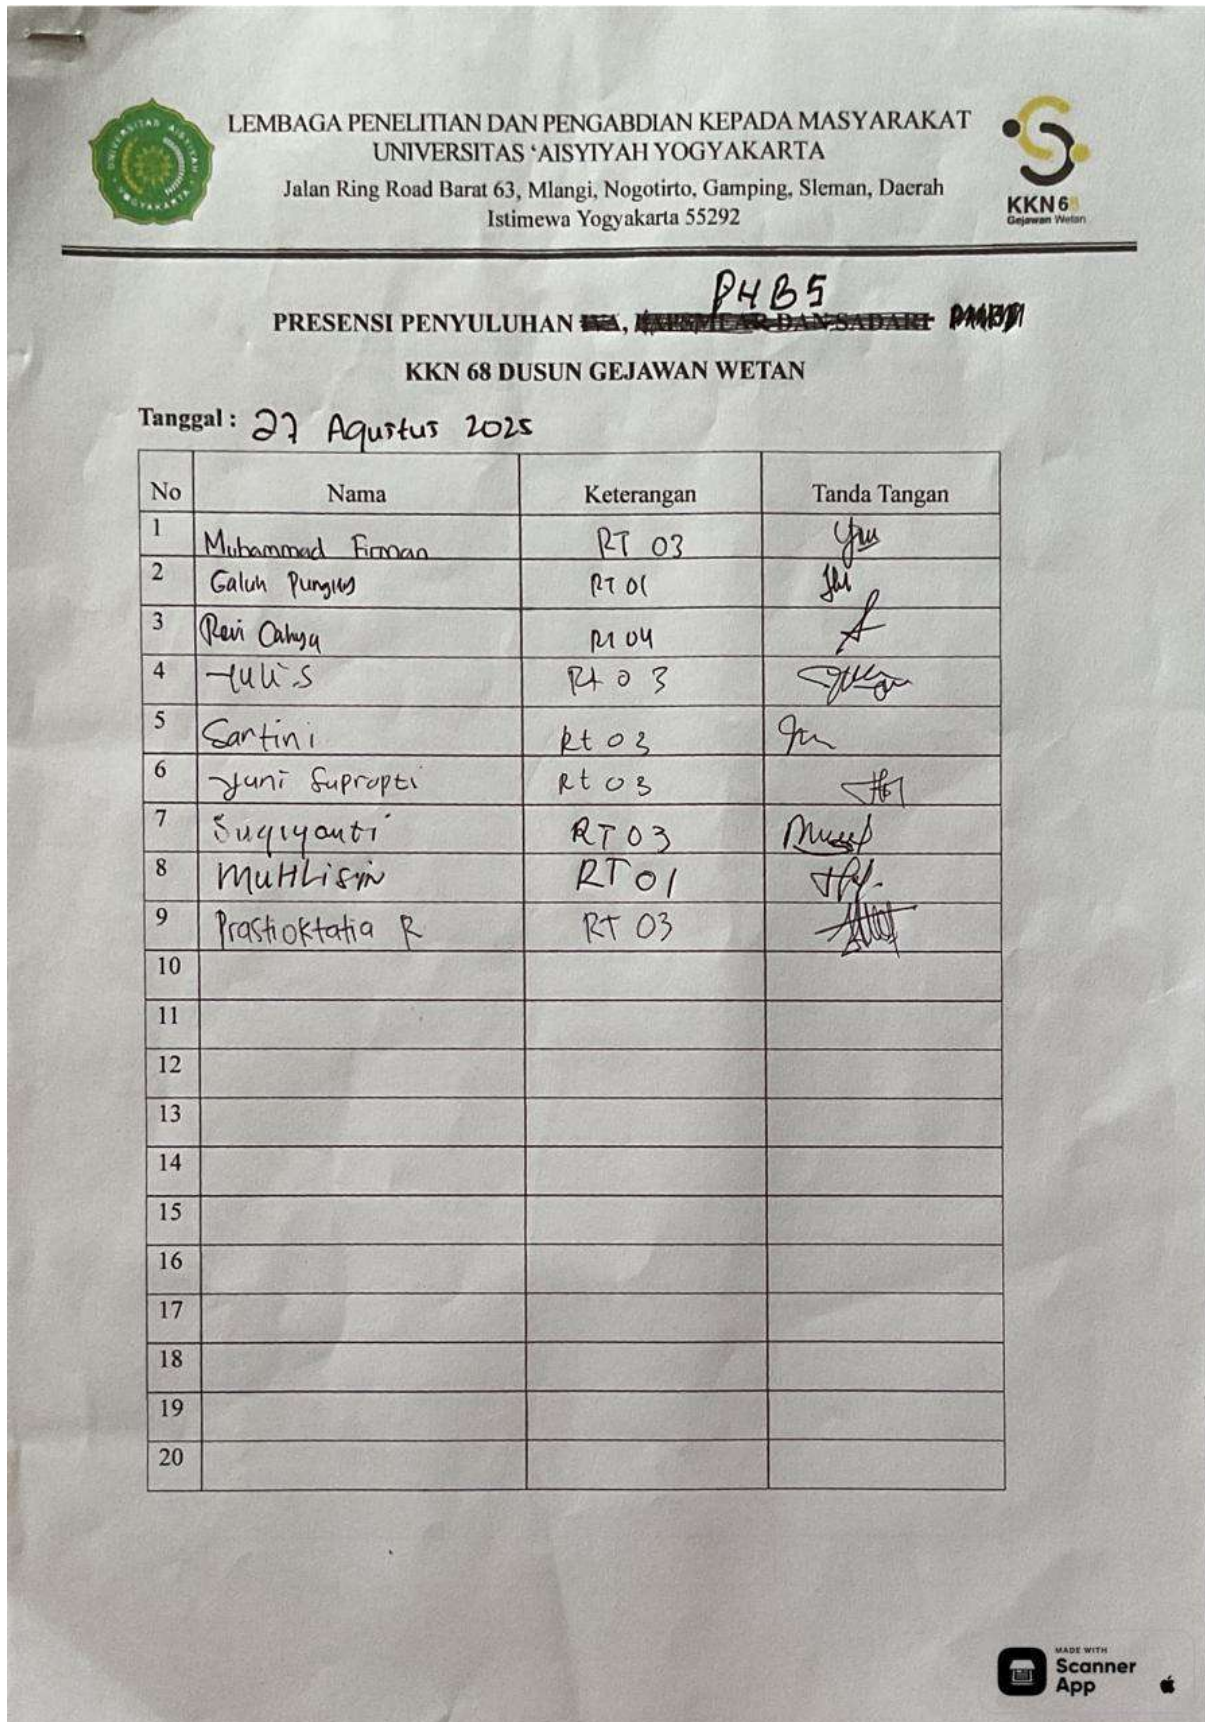 LEMBAGA PENELITIAN DAN PENGABDIAN KEPADA MASYARAKAT
UNIVERSITAS ‘AISYIYAH YOGYAKARTA
Jalan Ring Road Barat 63, Mlangi, Nogotirto, Gamping, Sleman, Daerah
Istimewa Yogyakarta 55292
UNIVERSITAS AISYIYAH YOGYAKARTA
KKN 68
Gejawan Wetan
PHBS
PRESENSI PENYULUHAN IVA, PAPSMEAR DAN SADARI
KKN 68 DUSUN GEJAWAN WETAN
Tanggal : 27 Agustus 2025
No Nama Keterangan Tanda Tangan
1 Muhammad Firman RT 03
2 Galuh RT 01
3 Revi Cahya RT 04
4 Yuli.S Rt 03
5 Sartini Rt 03
6 Yuni Suprapti Rt 03
7 Sugiyanti RT 03
8 MUHLiSiN RT 01
9 Prastioktatia R RT 03
10
11
12
13
14
15
16
17
18
19
20
MADE WITH
Scanner
App